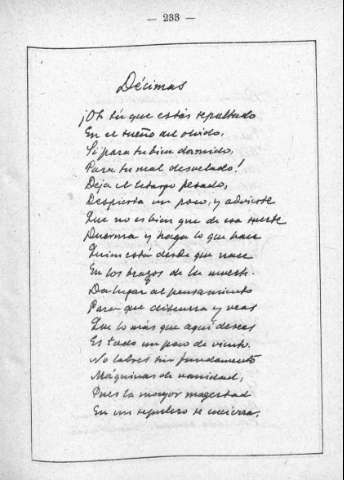 — 233 —
Décimas
¡Oh tú que estás sepultado
En el sueño del olvido,
Si para tu bien dormido,
Para tu mal desvelado!
Deja el letargo pesado,
Despierta un poco, y advierte
Que no es bien que de esa suerte
Duerma y haga lo que hace
Quien está desde que nace
En los brazos de la muerte.
Da lugar al pensamiento
Para que discurra y veas
Que lo más que aquí deseas
Es todo un poco de viento.
No labres sin fundamento
Máquinas de vanidad,
Pues la mayor majestad
En un sepulcro se encierra,